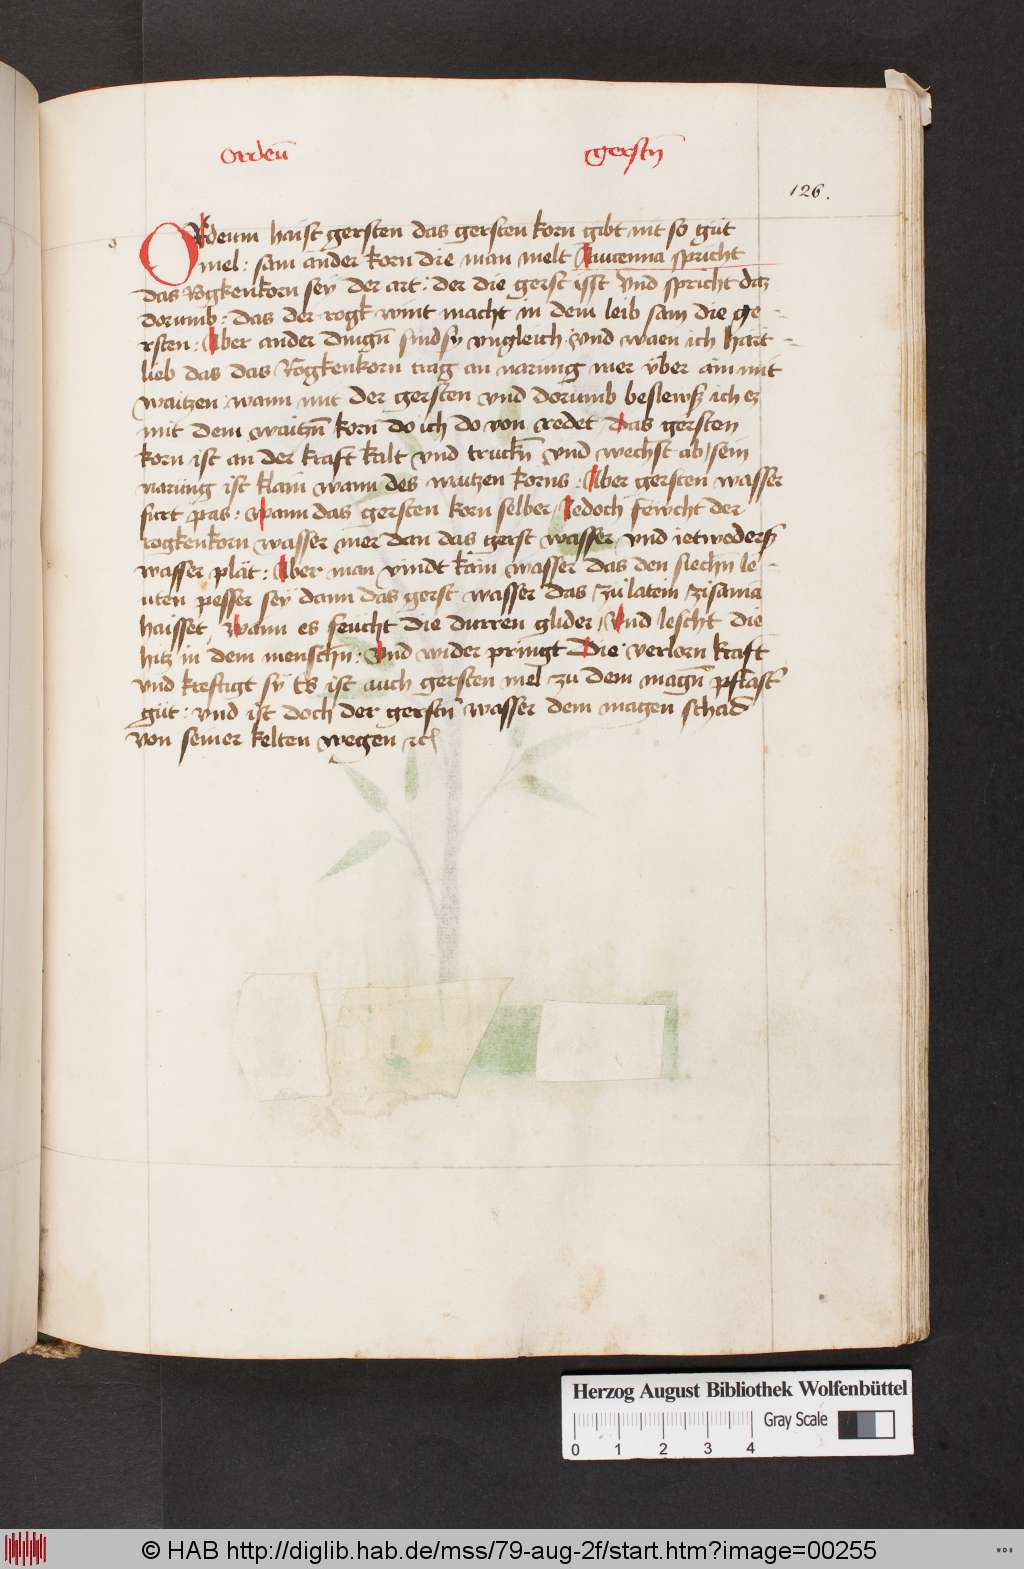 Ordeū gerstn̄
126.
ORdeum haist gersten das gersten korn gibt nit so gut
mel : sam ander korn die man melt Auicenna spricht
das Rogkenkorn sey der art : der die gerst ist Vnd spricht daz
dorumb : das der rogk wint macht in dem leib sam die ge-
rsten : Aber ander dingn̄ sind sy vngleich Vnd waen ich hart-
lieb das das Rogkenkorn trag an narung mer vber ain mit
waitzen wann mit der gersten vnd dorumb beslewß ich ez
mit dem waitzn̄ korn do ich do von redet das gersten
korn ist an der kraft kalt vnd truckn̄ vnd wechst ab sein
narung ist klain wann des waitzen korns : Aber gersten wasser
furt pas : wann das gersten korn selber Jedoch fewcht der
rogkenkorn wasser mer dan das gerst wasser vnd ietweders
wasser plät : Aber man vindt kain wasser das den siechn̄ le-
uten pesser sey dann das gerst wasser das zu latein zisama
haisset wann es feucht die durren glider Vnd lescht die
hitz in dem menschn̄ : vnd wider pringt Die verlorn kraft
vnd kreftigt sy Es ist auch gersten mel zu dem magn̄ pflast'
gut : vnd ist doch der gerstn̄ wasser dem magen schad
von seiner kelten wegen ꝛc
Herzog August Bibliothek Wolfenbüttel
Gray Scale
0 1 2 3 4
© HAB http://diglib.hab.de/mss/79-aug-2f/start.htm?image=00255